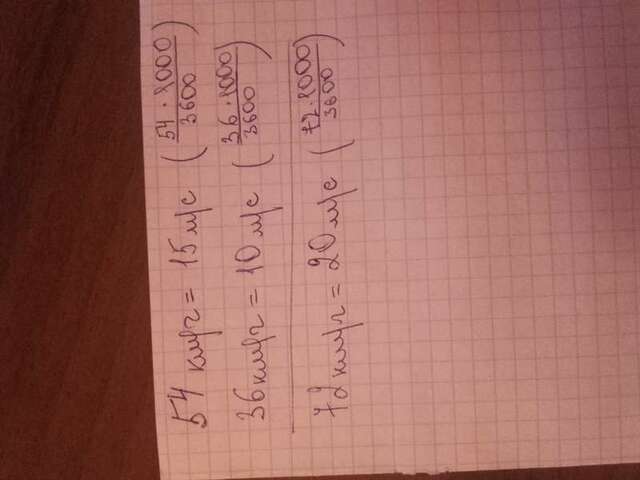 54 км/ч = 15 м/с (54 · 1000 / 3600)
36 км/ч = 10 м/с (36 · 1000 / 3600)
72 км/ч = 20 м/с (72 · 1000 / 3600)